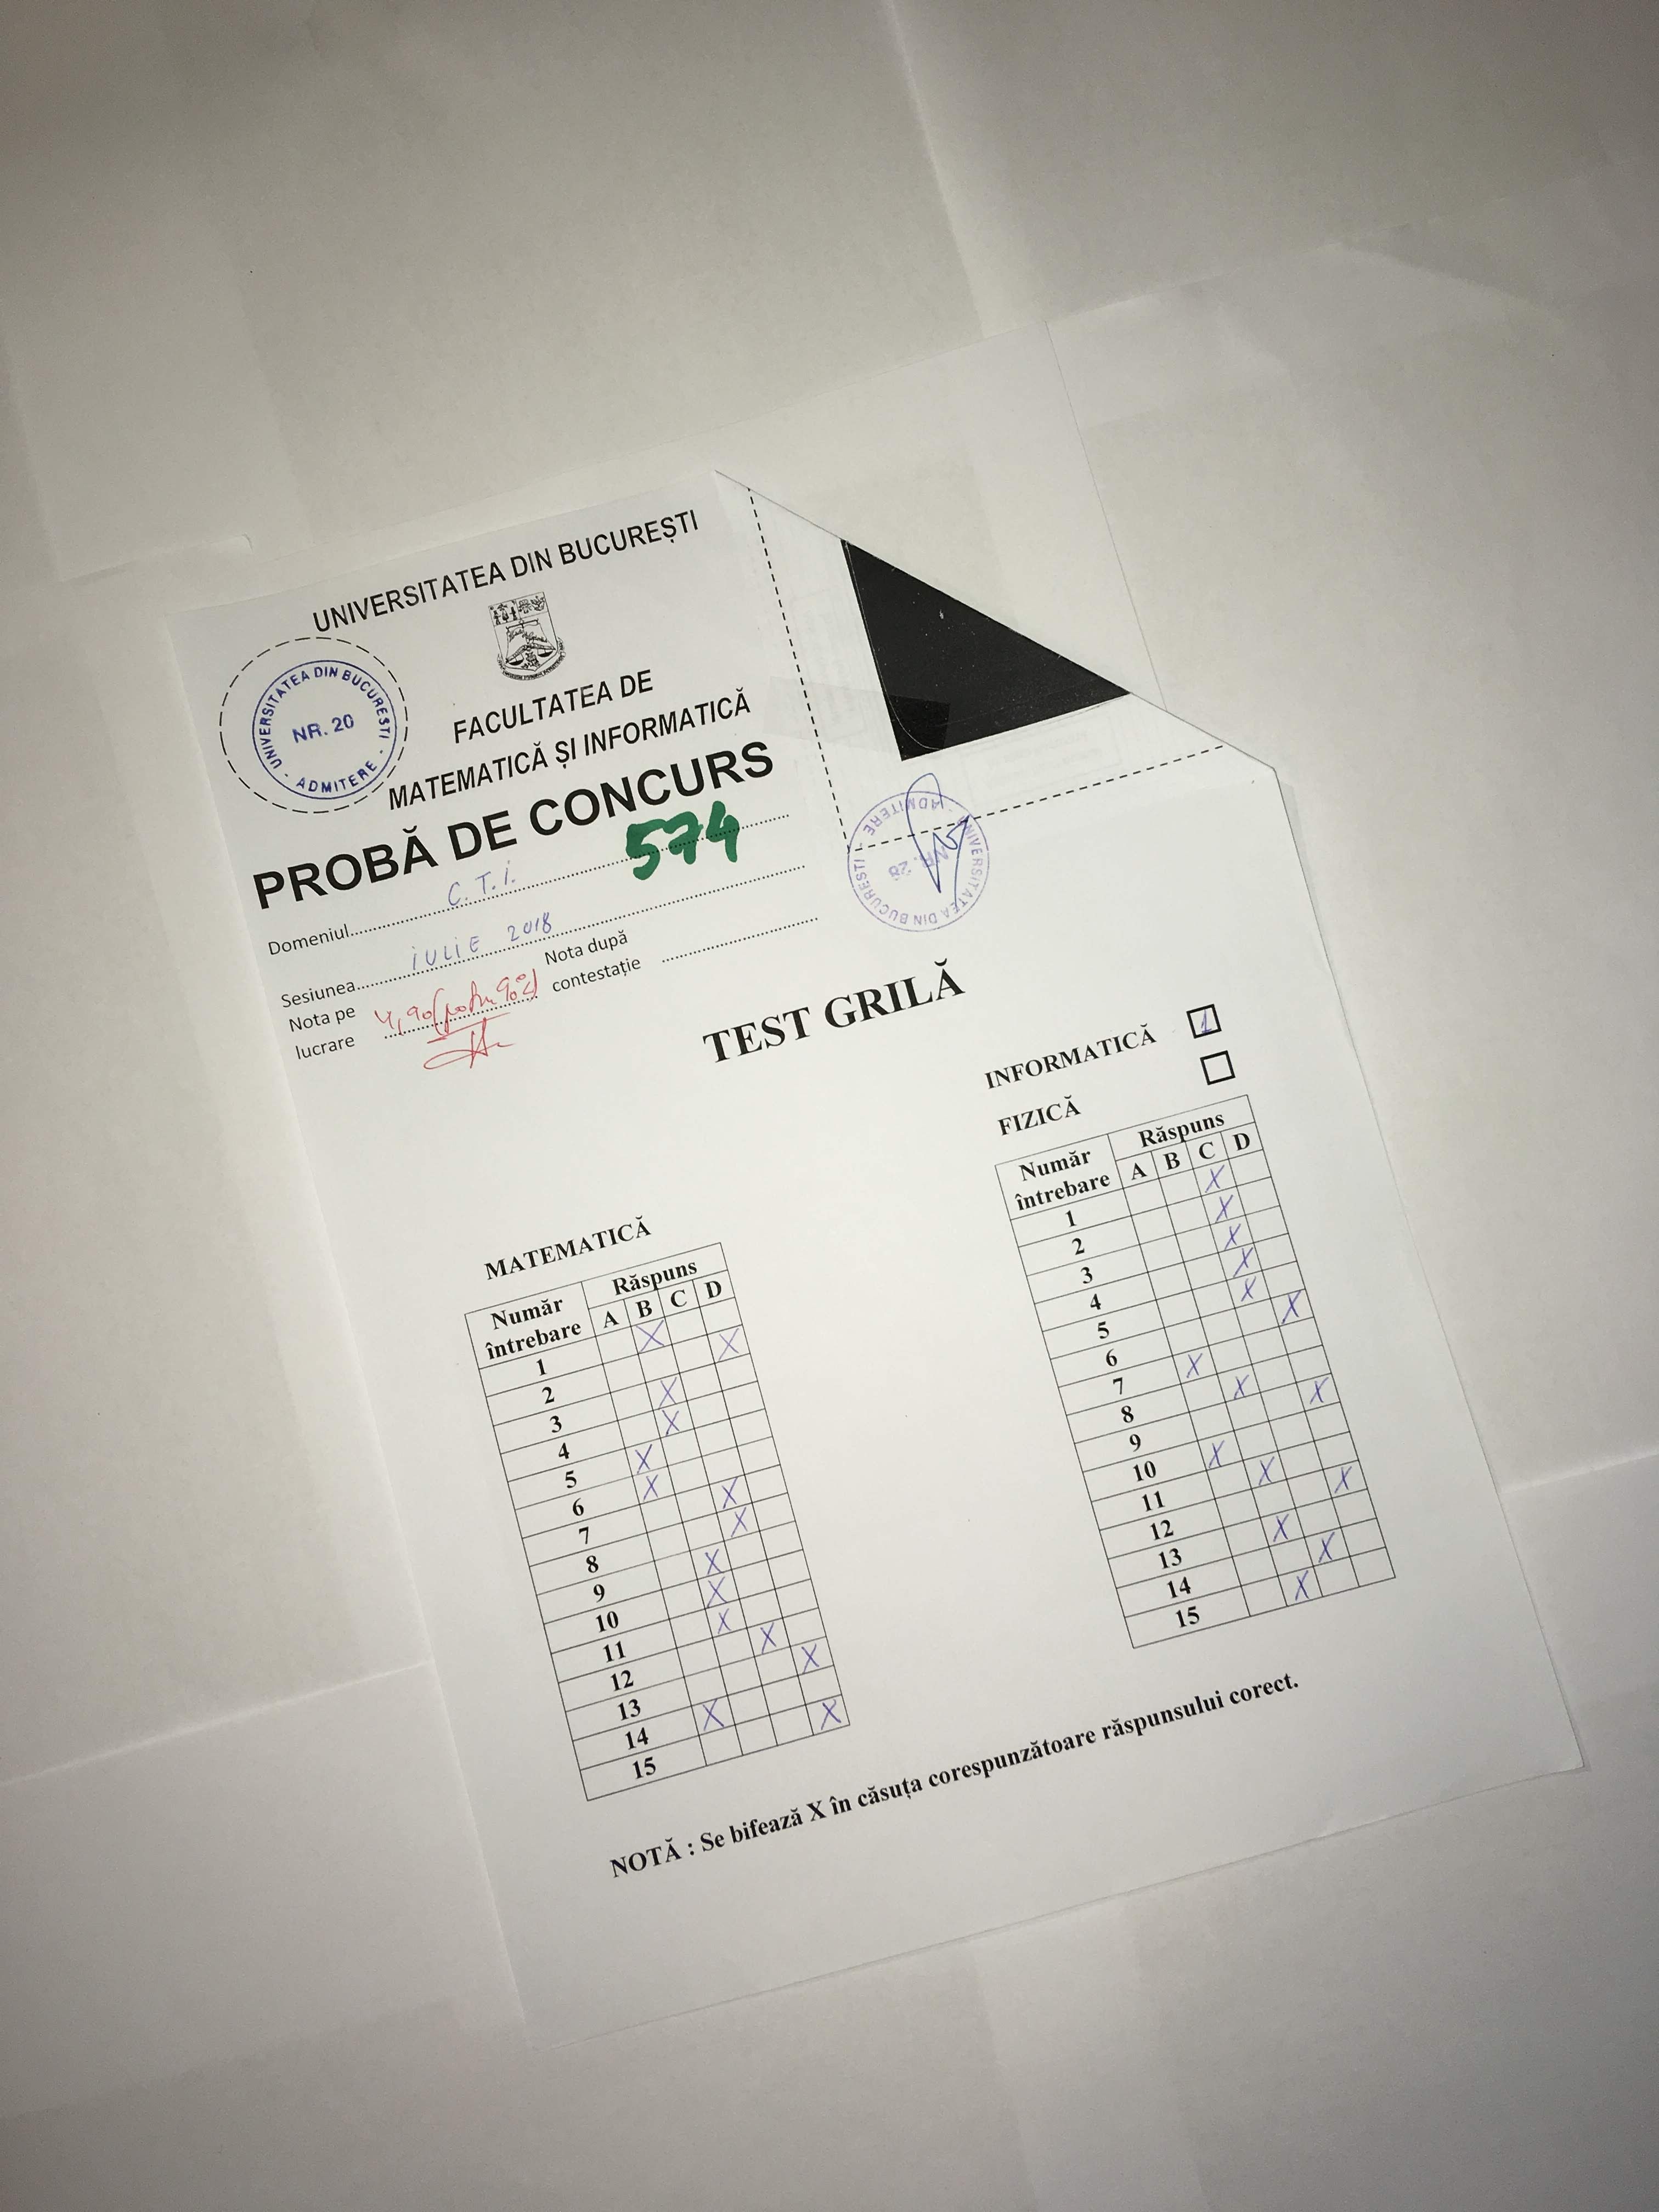 UNIVERSITATEA DIN BUCUREȘTI
UNIVERSITATEA DIN BUCURESTI
NR. 20
- ADMITERE -
FACULTATEA DE
MATEMATICĂ ȘI INFORMATICĂ
PROBĂ DE CONCURS
574
Domeniul C.T.I.
Sesiunea IULIE 2018
Nota pe lucrare 4,90
Nota după contestație
UNIVERSITATEA DIN BUCURESTI
NR. 28
ADMITERE
TEST GRILĂ
MATEMATICĂ
Număr întrebare Răspuns
A B C D
1 X
2 X
3 X
4 X
5 X
6 X
7 X
8 X
9 X
10 X
11 X
12 X
13 X
14 X
15 X
INFORMATICĂ 1
FIZICĂ
Număr întrebare Răspuns
A B C D
1 X
2 X
3 X
4 X
5 X
6 X
7 X
8 X
9 X
10 X
11 X
12 X
13 X
14 X
15 X
NOTĂ : Se bifează X în căsuța corespunzătoare răspunsului corect.